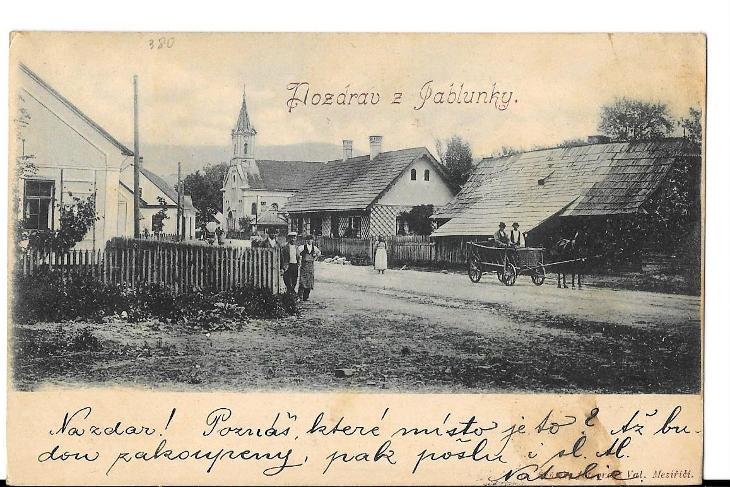 380
Pozdrav z Jablunky.
Nazdar! Poznáš, které místo je to? Až bu-
dou zakoupeny, pak pošlu i sl. M.
Natalie.
Val. Meziříčí.